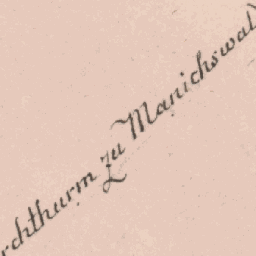 rchthurm zu Manichswal